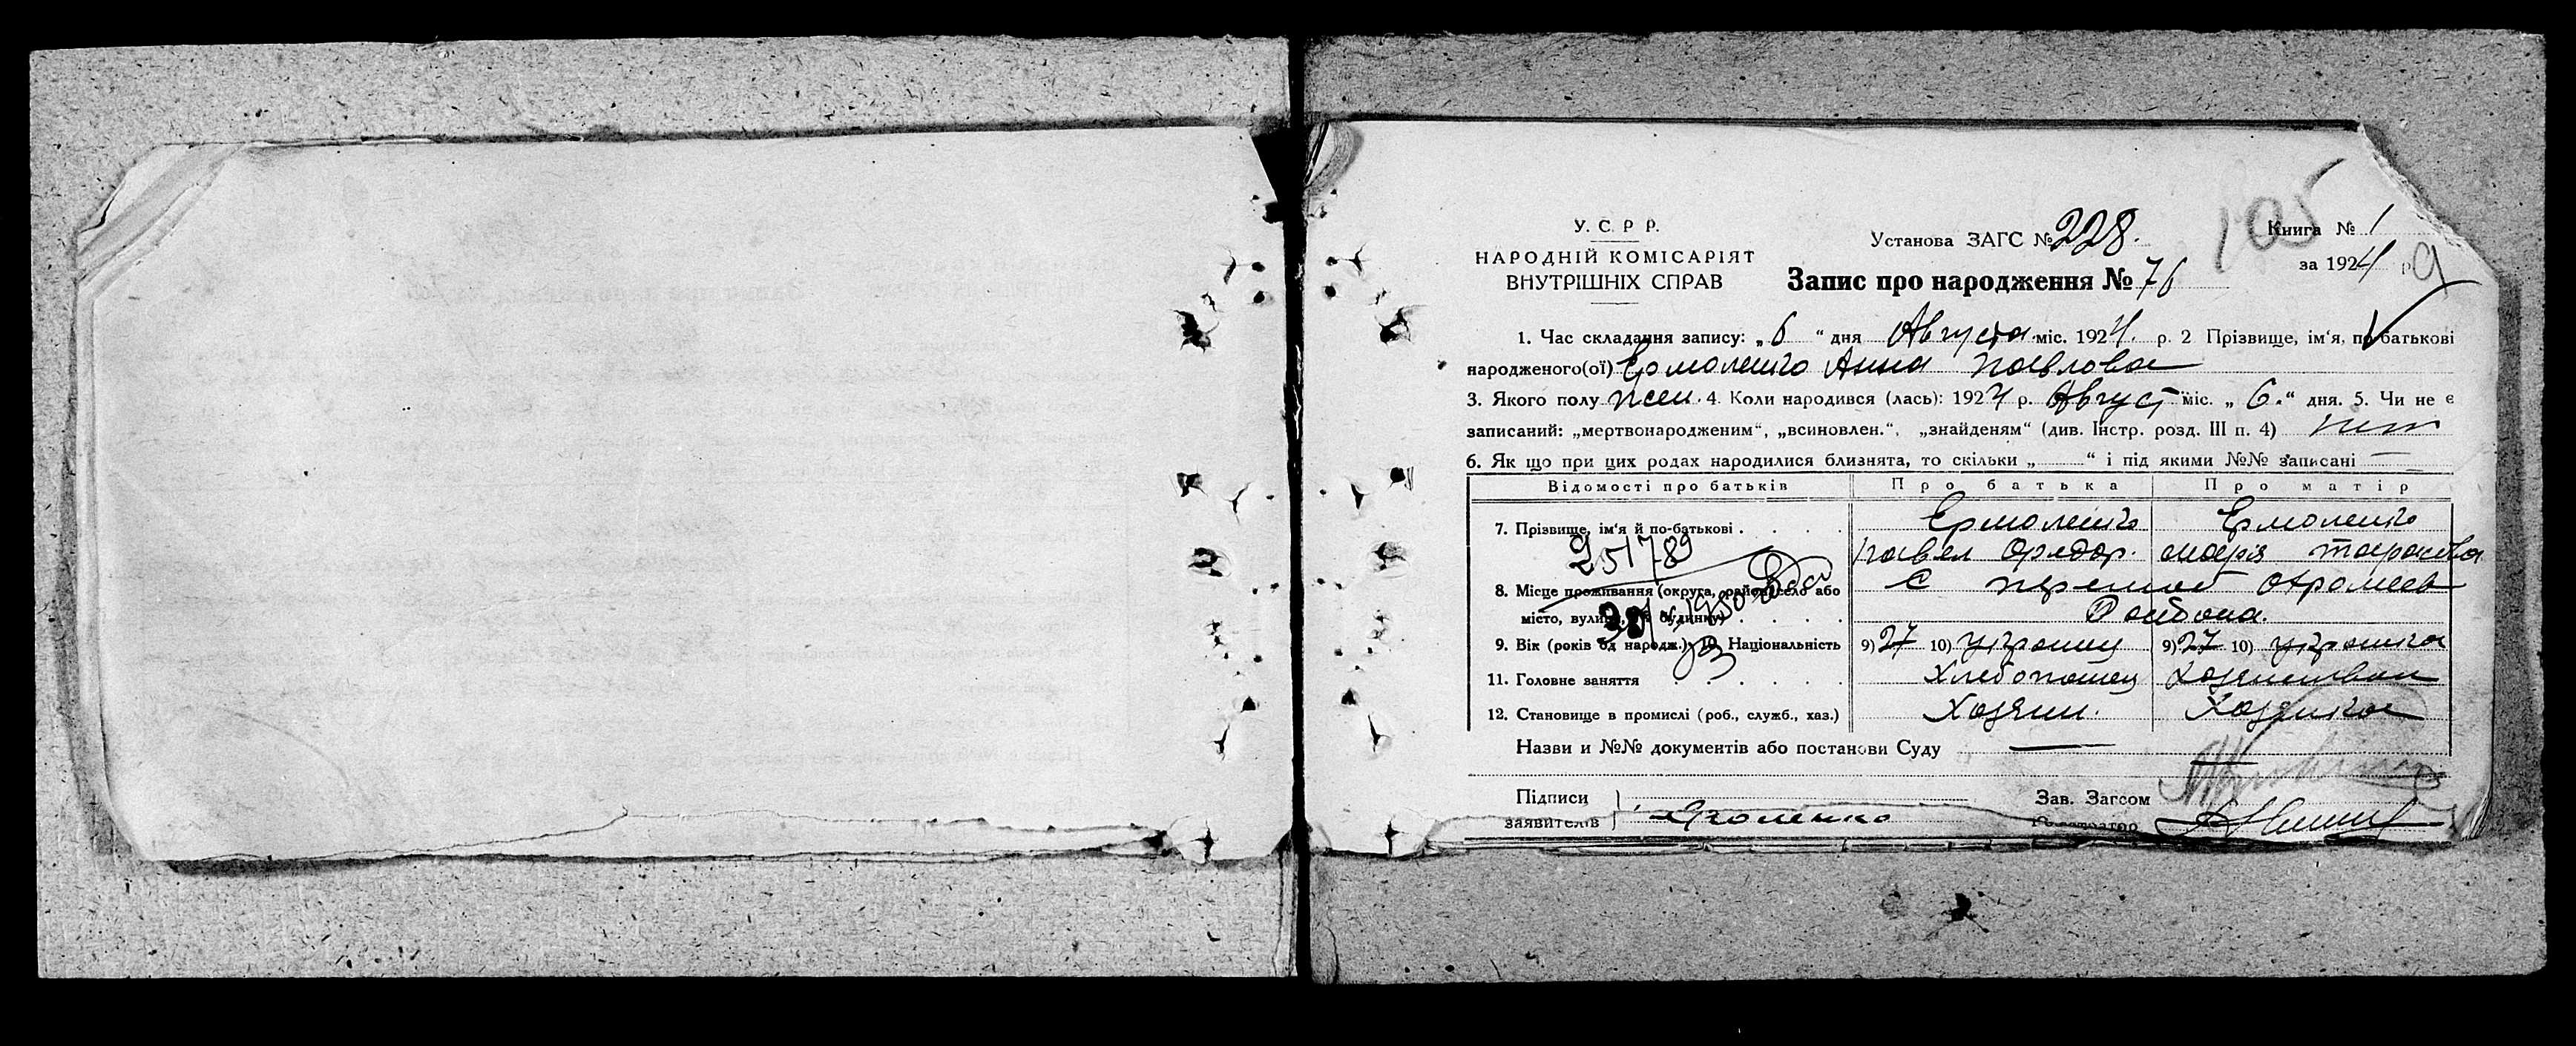 У. С. Р. Р.
НАРОДНІЙ КОМІСАРІЯТ
ВНУТРІШНІХ СПРАВ
Установа ЗАГС № 228.
105
Книга № 1
за 1924 р
9
Запис про народження № 76
1. Час складання запису: „6“ дня Августа міс. 1924. р. 2 Прізвище, ім‘я, по батькові
народженого(ої) Ермоленко Анна Павлова
3. Якого полу жен. 4. Коли народився (лась): 1924 р. Август міс. „6.“ дня. 5. Чи не є
записаний: „мертвонародженим“, „всиновлен.“, „знайденям“ (див. Інстр. розд. III п. 4) нет
6. Як що при цих родах народилися близнята, то скільки „ “ і під якими №№ записані —
Відомості про батьків Про батька Про матір
7. Прізвище, ім‘я й по-батькові . . . . Ермоленко Ермоленко
Павел Федор. Мария Тарасова
251789
8. Місце проживання (округа, район, село або С
місто, вулиця, № будинку) . . . .
1950
9. Вік (років од народж.) 10. Національність 9) 27 10) украинец 9) 27 10) украинка
11. Головне заняття . . . . . Хлебопашец
12. Становище в промислі (роб., служб., хаз.) Хозяин. Хозяйка
Назви и №№ документів або постанови Суду —
Підписи
заявителів
Зав. Загсом
Реєстратор